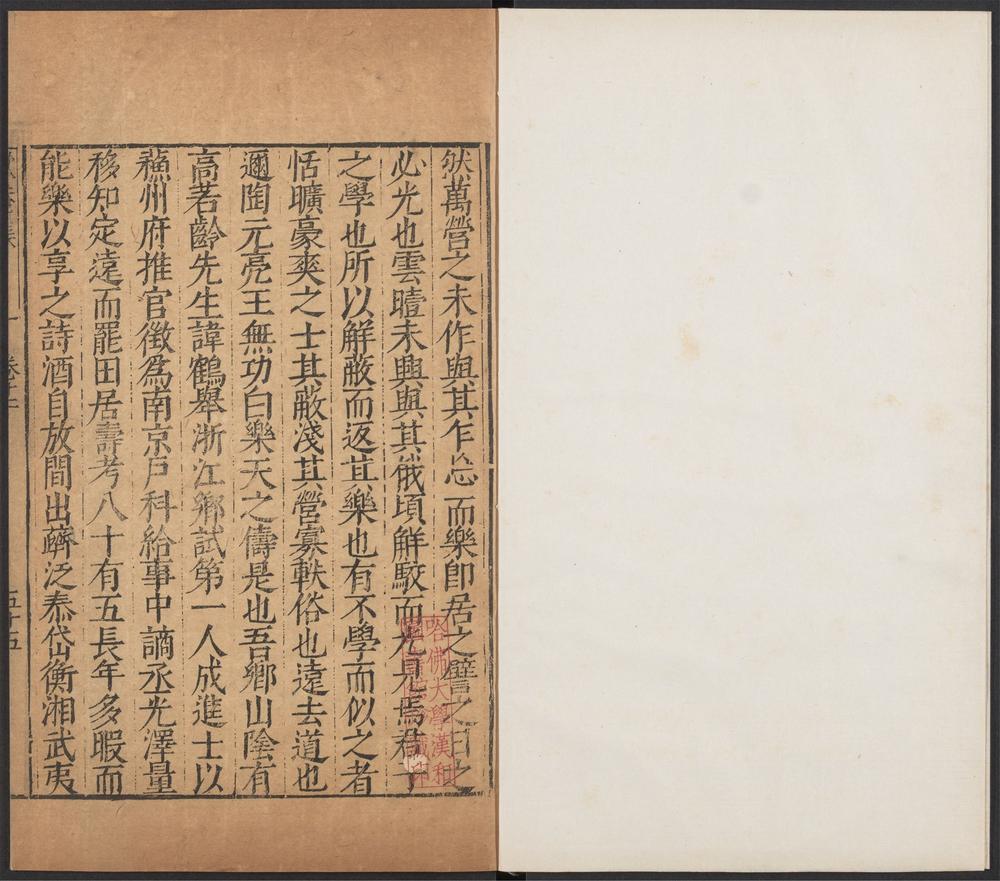 然萬營之未作與其乍忘而樂卽居之譬之日之
必光也雲曀未興與其俄頃解駮而光見焉君子
之學也所以解蔽而返其樂也有不學而似之者
恬曠豪爽之士其蔽淺其營寡軼俗也遠去道也
邇陶元亮王無功白樂天之儔是也吾鄉山陰有
高若齡先生諱鶴舉浙江鄉試第一人成進士以
蘓州府推官徵爲南京戶科給事中謫丞光澤量
移知定遠而罷田居壽考八十有五長年多暇而
能樂以享之詩酒自放間出躋泛泰岱衡湘武夷
五十五
哈佛大學漢和